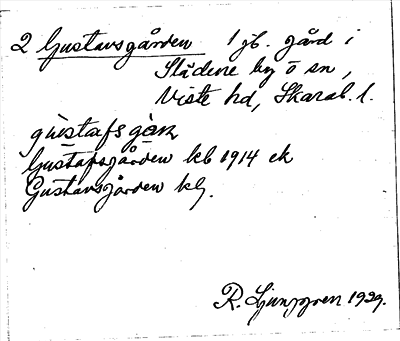 2 Gustavsgården 1 jb. gård i
Slädene by o sn,
Viste hd, Skarab. l.
gustafs gårn
Gustafsgården kb 1914 ek
Gustavsgården kly.
R. Ljunggren 1929.